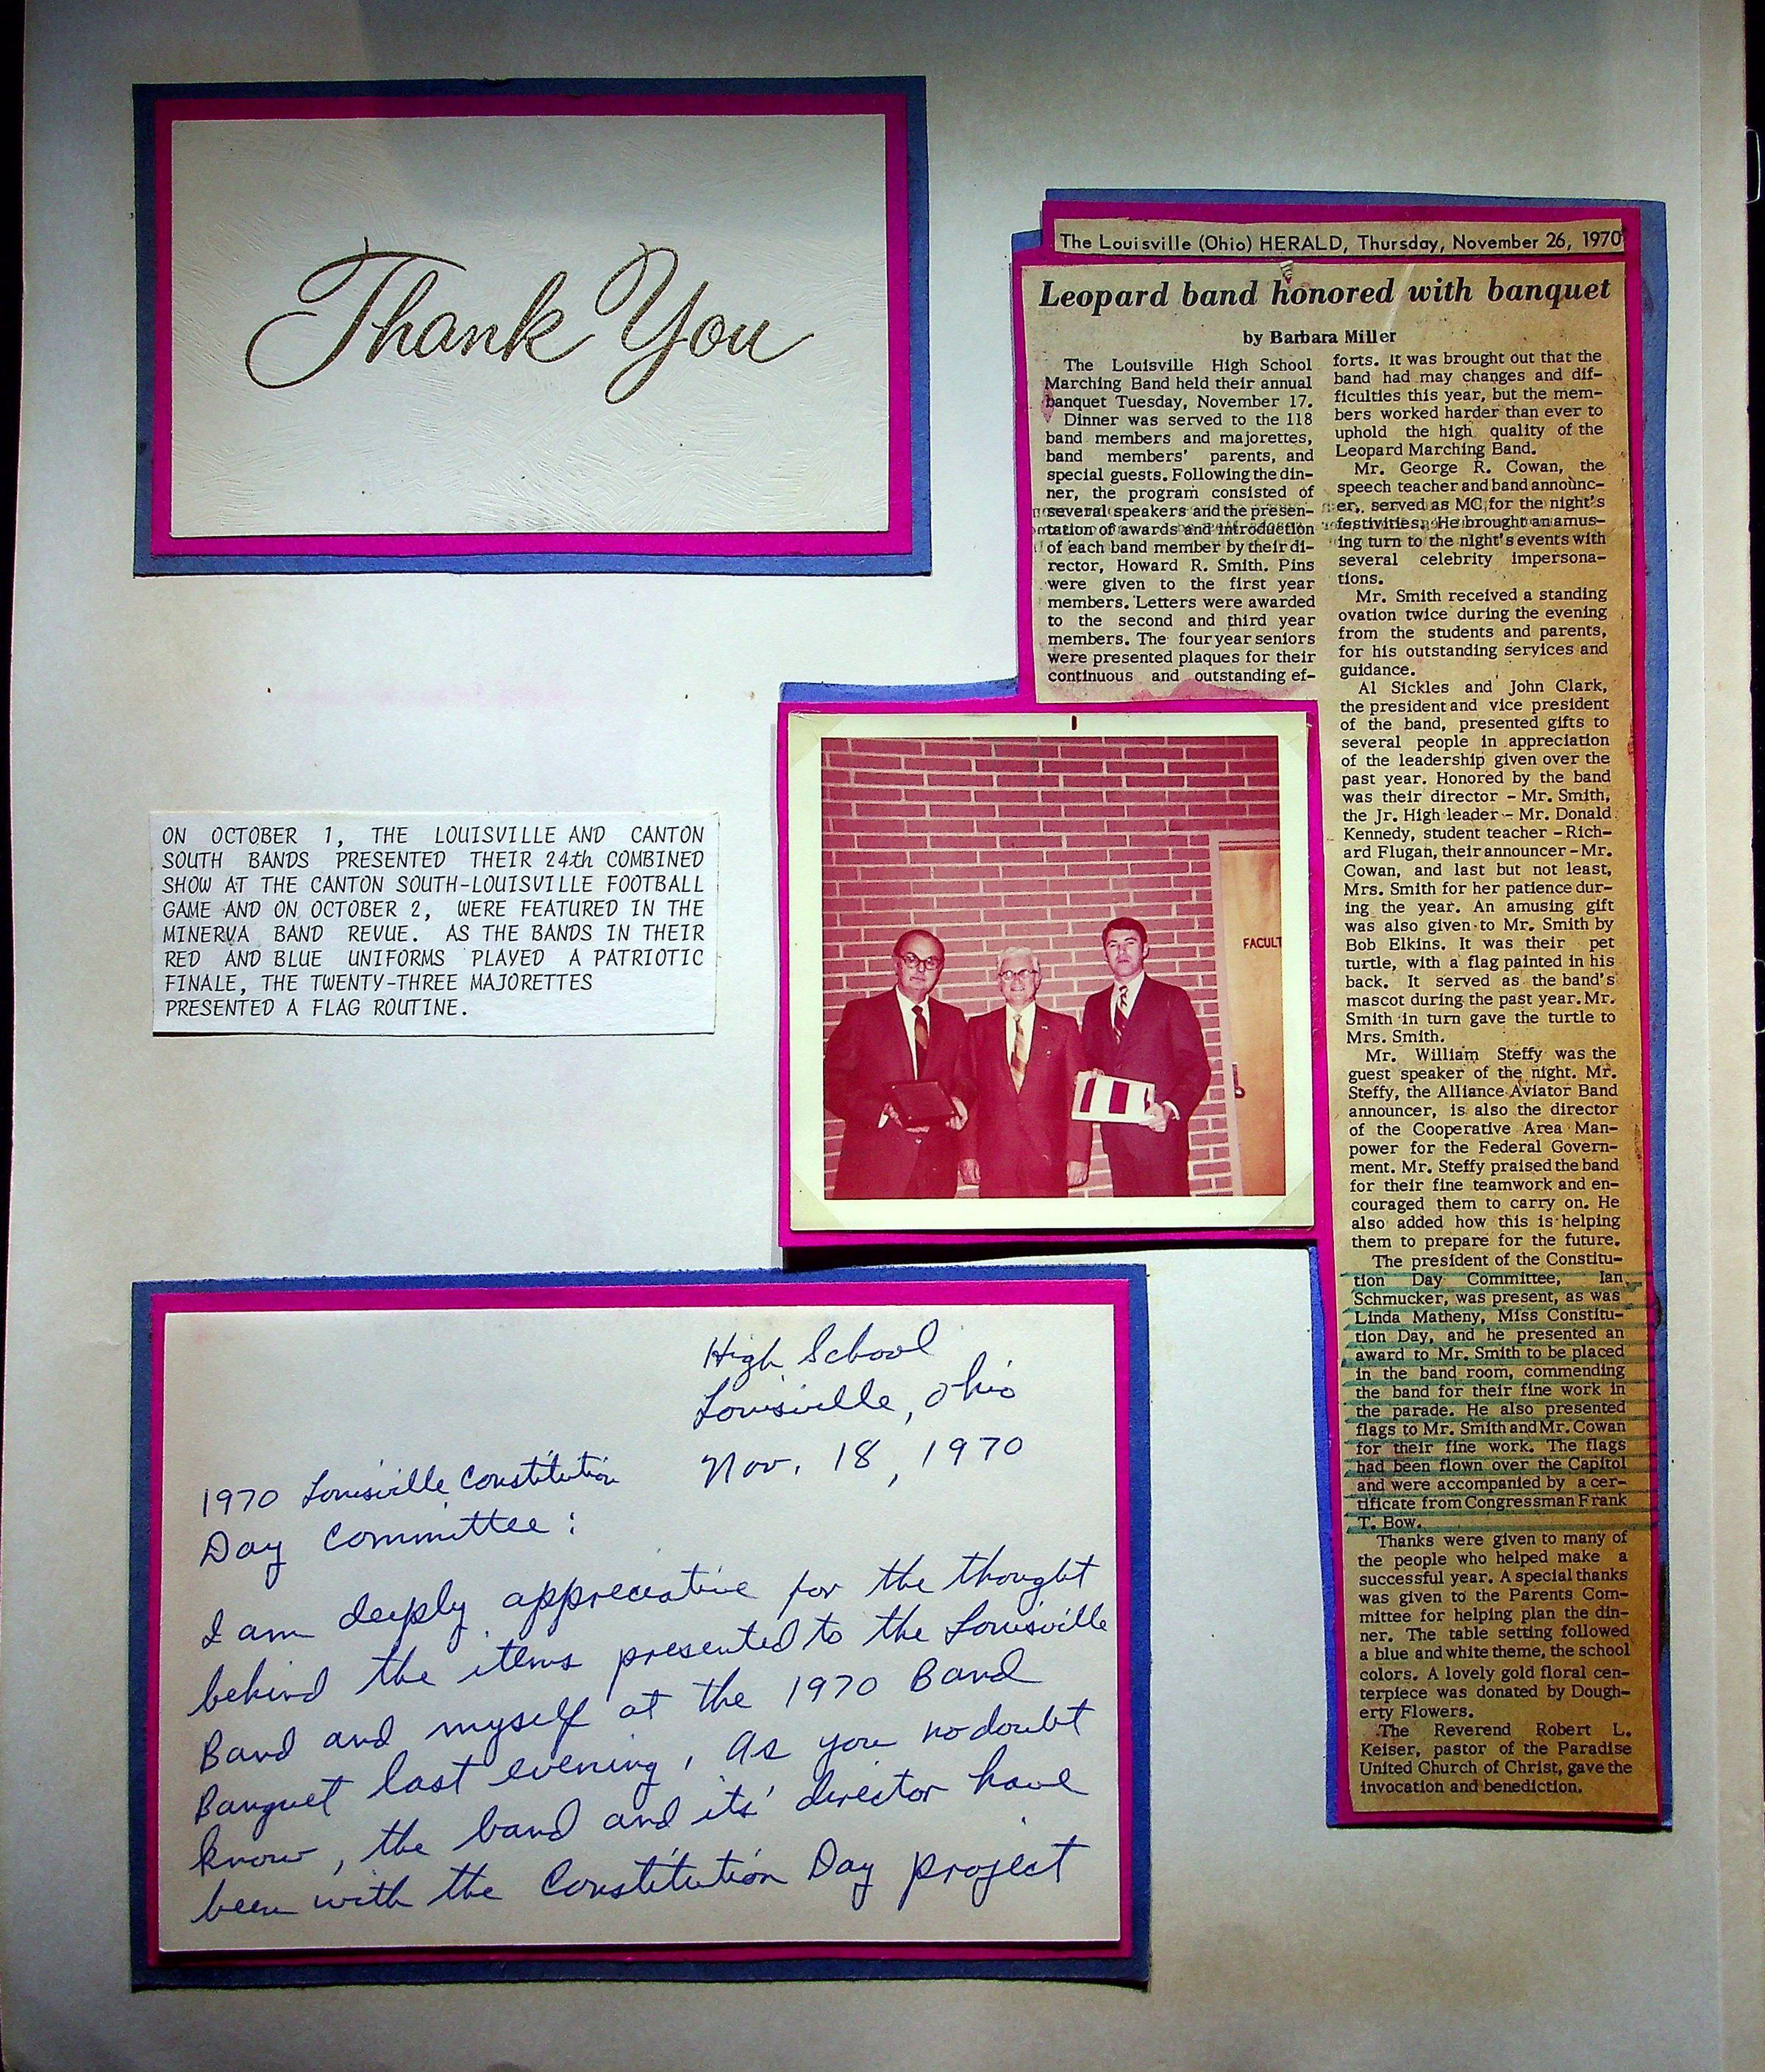 Thank You
The Louisville (Ohio) HERALD, Thursday, November 26, 1970
Leopard band honored with banquet
by Barbara Miller
The Louisville High School
Marching Band held their annual
banquet Tuesday, November 17.
Dinner was served to the 118
band members and majorettes,
band members' parents, and
special guests. Following the din-
ner, the program consisted of
several speakers and the presen-
tation of awards and introduction
of each band member by their di-
rector, Howard R. Smith. Pins
were given to the first year
members. Letters were awarded
to the second and third year
members. The four year seniors
were presented plaques for their
continuous and outstanding ef-
forts. It was brought out that the
band had may changes and dif-
ficulties this year, but the mem-
bers worked harder than ever to
uphold the high quality of the
Leopard Marching Band.
Mr. George R. Cowan, the
speech teacher and band announc-
er, served as MC for the night's
festivities. He brought an amus-
ing turn to the night's events with
several celebrity impersona-
tions.
Mr. Smith received a standing
ovation twice during the evening
from the students and parents,
for his outstanding services and
guidance.
Al Sickles and John Clark,
the president and vice president
of the band, presented gifts to
several people in appreciation
of the leadership given over the
past year. Honored by the band
was their director - Mr. Smith,
the Jr. High leader - Mr. Donald
Kennedy, student teacher - Rich-
ard Flugan, their announcer - Mr.
Cowan, and last but not least,
Mrs. Smith for her patience dur-
ing the year. An amusing gift
was also given to Mr. Smith by
Bob Elkins. It was their pet
turtle, with a flag painted in his
back. It served as the band's
mascot during the past year. Mr.
Smith in turn gave the turtle to
Mrs. Smith.
Mr. William Steffy was the
guest speaker of the night. Mr.
Steffy, the Alliance Aviator Band
announcer, is also the director
of the Cooperative Area Man-
power for the Federal Govern-
ment. Mr. Steffy praised the band
for their fine teamwork and en-
couraged them to carry on. He
also added how this is helping
them to prepare for the future.
The president of the Constitu-
tion Day Committee, Ian
Schmucker, was present, as was
Linda Matheny, Miss Constitu-
tion Day, and he presented an
award to Mr. Smith to be placed
in the band room, commending
the band for their fine work in
the parade. He also presented
flags to Mr. Smith and Mr. Cowan
for their fine work. The flags
had been flown over the Capitol
and were accompanied by a cer-
tificate from Congressman Frank
T. Bow.
Thanks were given to many of
the people who helped make a
successful year. A special thanks
was given to the Parents Com-
mittee for helping plan the din-
ner. The table setting followed
a blue and white theme, the school
colors. A lovely gold floral cen-
terpiece was donated by Dough-
erty Flowers.
The Reverend Robert L.
Keiser, pastor of the Paradise
United Church of Christ, gave the
invocation and benediction.
ON OCTOBER 1, THE LOUISVILLE AND CANTON
SOUTH BANDS PRESENTED THEIR 24th COMBINED
SHOW AT THE CANTON SOUTH-LOUISVILLE FOOTBALL
GAME AND ON OCTOBER 2, WERE FEATURED IN THE
MINERVA BAND REVUE. AS THE BANDS IN THEIR
RED AND BLUE UNIFORMS PLAYED A PATRIOTIC
FINALE, THE TWENTY-THREE MAJORETTES
PRESENTED A FLAG ROUTINE.
FACULT
High School
Louisville, Ohio
Nov. 18, 1970
1970 Louisville Constitution
Day Committee:
I am deeply appreciative for the thought
behind the items presented to the Louisville
Band and myself at the 1970 Band
Banquet last evening. As you no doubt
know, the band and its' director have
been with the Constitution Day project